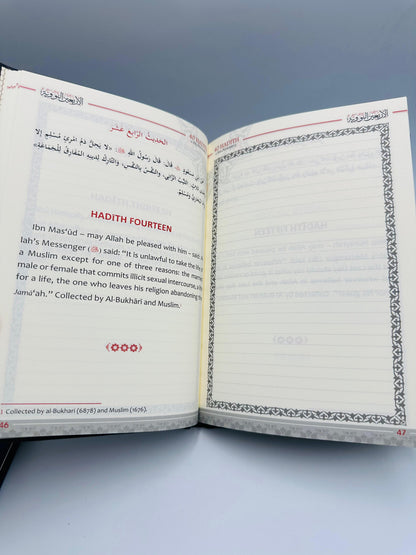 الأربعين النووية
40 HADITH
الحديث الرابع عشر
ابن مسعود قال: قال رسول الله ﷺ: «لا يحل دم امرئ مسلم إلا
ثلاث: الثيب الزاني، والنفس بالنفس، والتارك لدينه المفارق للجماعة».
البخاري ومسلم.
HADITH FOURTEEN
Ibn Mas‘ūd – may Allah be pleased with him – said
lah's Messenger (ﷺ) said: “It is unlawful to take the
a Muslim except for one of three reasons: the
male or female that commits illicit sexual intercourse, a
for a life, the one who leaves his religion abandoning
Jamā‘ah.” Collected by Al-Bukhāri and Muslim.¹
1 Collected by al-Bukhari (6878) and Muslim (1676).
46
40 HADITH
الأربعين النووية
47